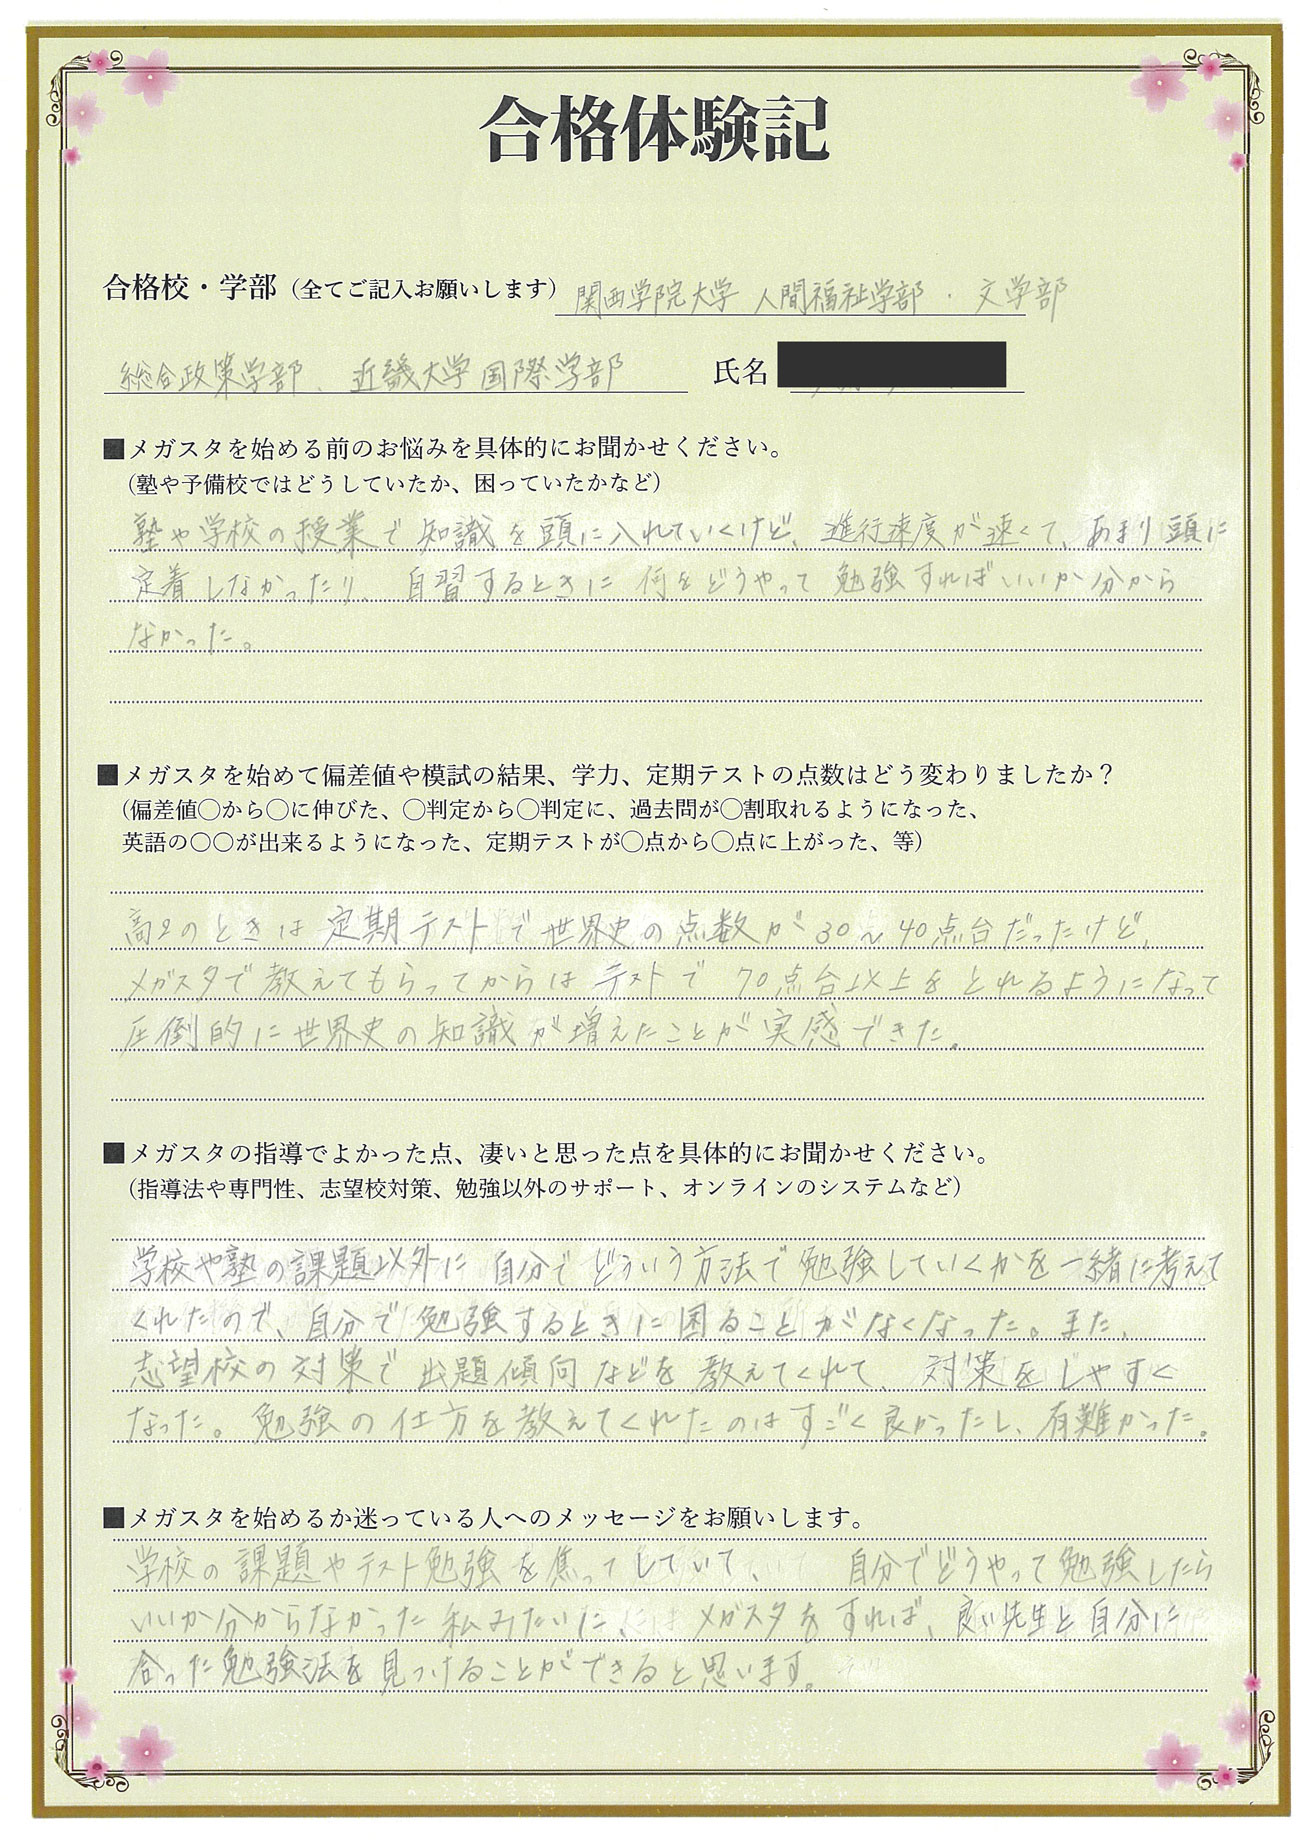 合格体験記
合格校・学部（全てご記入お願いします） 関西学院大学 人間福祉学部 . 文学部
総合政策学部、近畿大学国際学部 氏名
■メガスタを始める前のお悩みを具体的にお聞かせください。
（塾や予備校ではどうしていたか、困っていたかなど）
塾や学校の授業で知識を頭に入れていくけど、進行速度が速くて、あまり頭に
定着しなかったり、自習するときに何をどうやって勉強すればいいか分から
なかった。
■メガスタを始めて偏差値や模試の結果、学力、定期テストの点数はどう変わりましたか？
（偏差値〇から〇に伸びた、〇判定から〇判定に、過去問が〇割取れるようになった、
英語の〇〇が出来るようになった、定期テストが〇点から〇点に上がった、等）
高2のときは定期テストで世界史の点数が30～40点台だったけど、
メガスタで教えてもらってからはテストで70点台以上をとれるようになって
圧倒的に世界史の知識が増えたことが実感できた。
■メガスタの指導でよかった点、凄いと思った点を具体的にお聞かせください。
（指導法や専門性、志望校対策、勉強以外のサポート、オンラインのシステムなど）
学校や塾の課題以外に自分でどういう方法で勉強していくかを一緒に考えて
くれたので、自分で勉強するときに困ることがなくなった。また、
志望校の対策で出題傾向などを教えてくれて、対策をしやすく
なった。勉強の仕方を教えてくれたのはすごく良かったし、有難かった。
■メガスタを始めるか迷っている人へのメッセージをお願いします。
学校の課題やテスト勉強を焦ってしていて、自分でどうやって勉強したら
いいか分からなかった私みたいに、メガスタをすれば、良い先生と自分に
合った勉強法を見つけることができると思います。